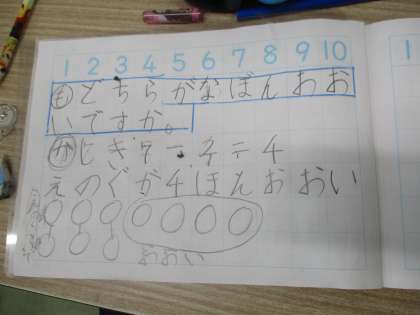 1 2 3 4 5 6 7 8 9 10
もどちらがなぼんおお
いですか。
しき7-3=4
えのぐが4ほんおおい
おおい